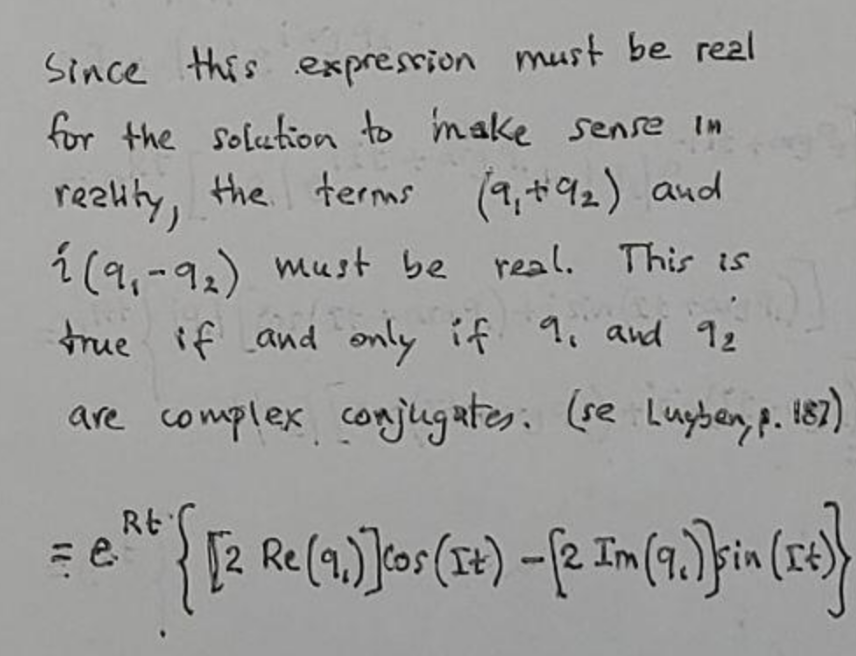 Since this expression must be real
for the solution to make sense in
reality, the terms (q₁+q₂) and
i(q₁-q₂) must be real. This is
true if and only if q₁ and q₂
are complex conjugates. (se Luyben, p. 187)
= e^{Rt} {[2 Re(q₁)]cos(It) - [2 Im(q₁)]sin(It)}